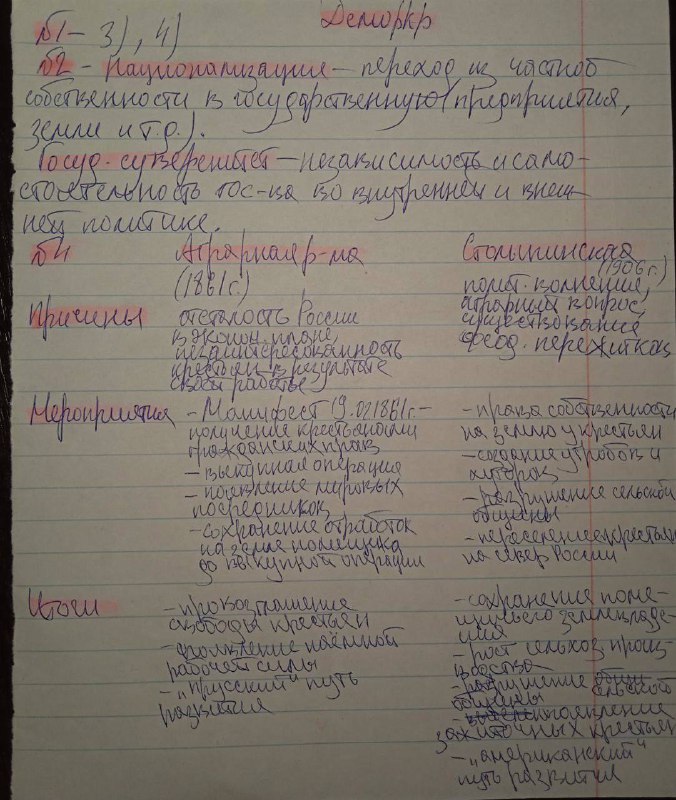 Деморкр
№1 - 3), 4)
№2 - Национализация - переход из частной
собственности в государственную (предприятия,
земли и т.д.).
Госуд. суверенитет - независимость и само-
стоятельность гос-ва во внутренней и внеш-
ней политике.
№4 Аграрная р-ма Столыпинская
(1861г.) (1906г.)
Причины отсталость России
в эконом. плане,
незаинтересованность
крестьян в результате
своей работы
полит. волнения,
аграрный вопрос,
существование
феод. пережитков
Мероприятия - Манифест 19.02.1861г. -
получение крестьянами
гражданских прав
- выкупная операция
- появление мировых
посредников
- сохранение отработок
на земле помещика
до выкупной операции
- права собственности
на землю у крестьян
- создание отрубов и
хуторов
- разрушение сельской
общины
- переселение крестьян
на север России
Итоги - провозглашение
свободы крестьян
- появление наёмной
рабочей силы
- "прусский" путь
развития
- сохранение поме-
щичьего землевладе-
ния
- рост сельхоз. произ-
водства
- разрушение сельской
общины
- появление
зажиточных крестьян
- "американский"
путь развития